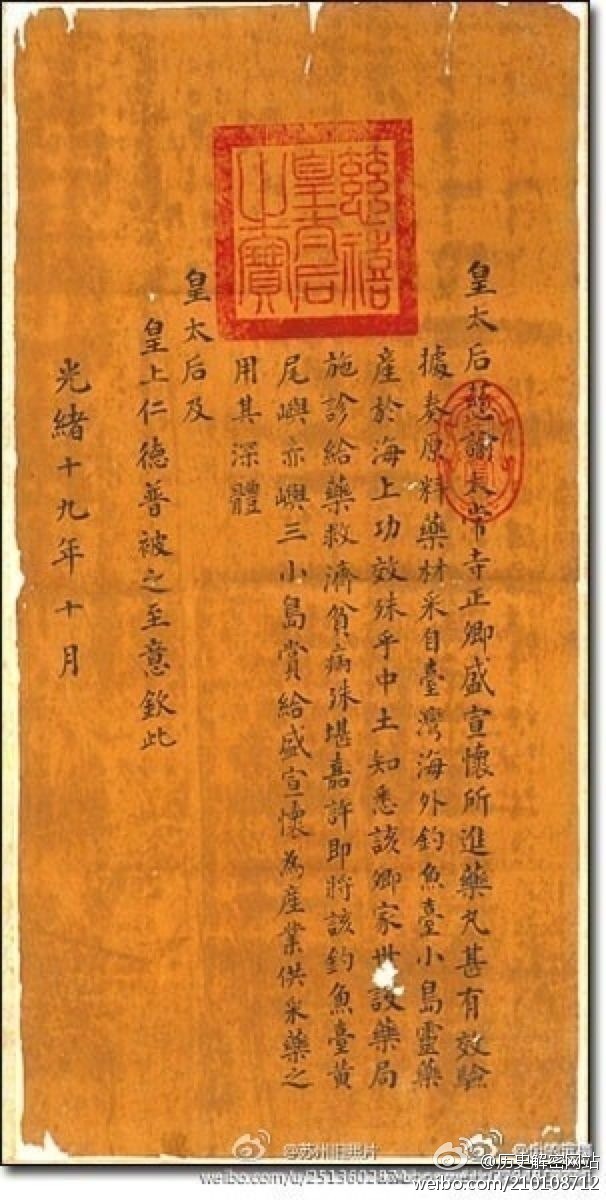 慈禧
皇太后
之寶
皇太后慈諭太常寺正卿盛宣懷所進藥丸甚有效驗
據奏原料藥材采自臺灣海外釣魚臺小島靈藥
產於海上功效殊乎中土知悉該卿家世設藥局
施診給藥救濟貧病殊堪嘉許即將該釣魚臺黃
尾嶼赤嶼三小島賞給盛宣懷為產業供采藥之
用其深體
皇太后及
皇上仁德普被之至意欽此
光緒十九年十月
@苏州旧照片
@历史解密网站
weibo.com/210108712